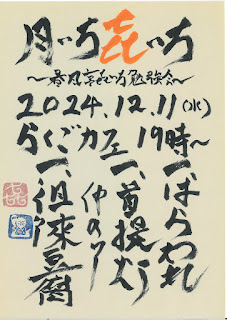 月いち㐂いち
〜春風亭㐂いち勉強会〜
2024.12.11(水)
らくごカフェ 19時〜
一、首提灯
仲入り
一、徂徠豆腐